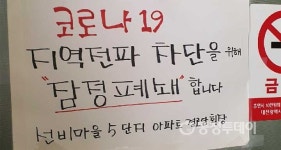 코로나 19
지역전파 차단을 위해
"잠정폐쇄" 합니다
선비마을 5단지 아파트 경로당 회장
금